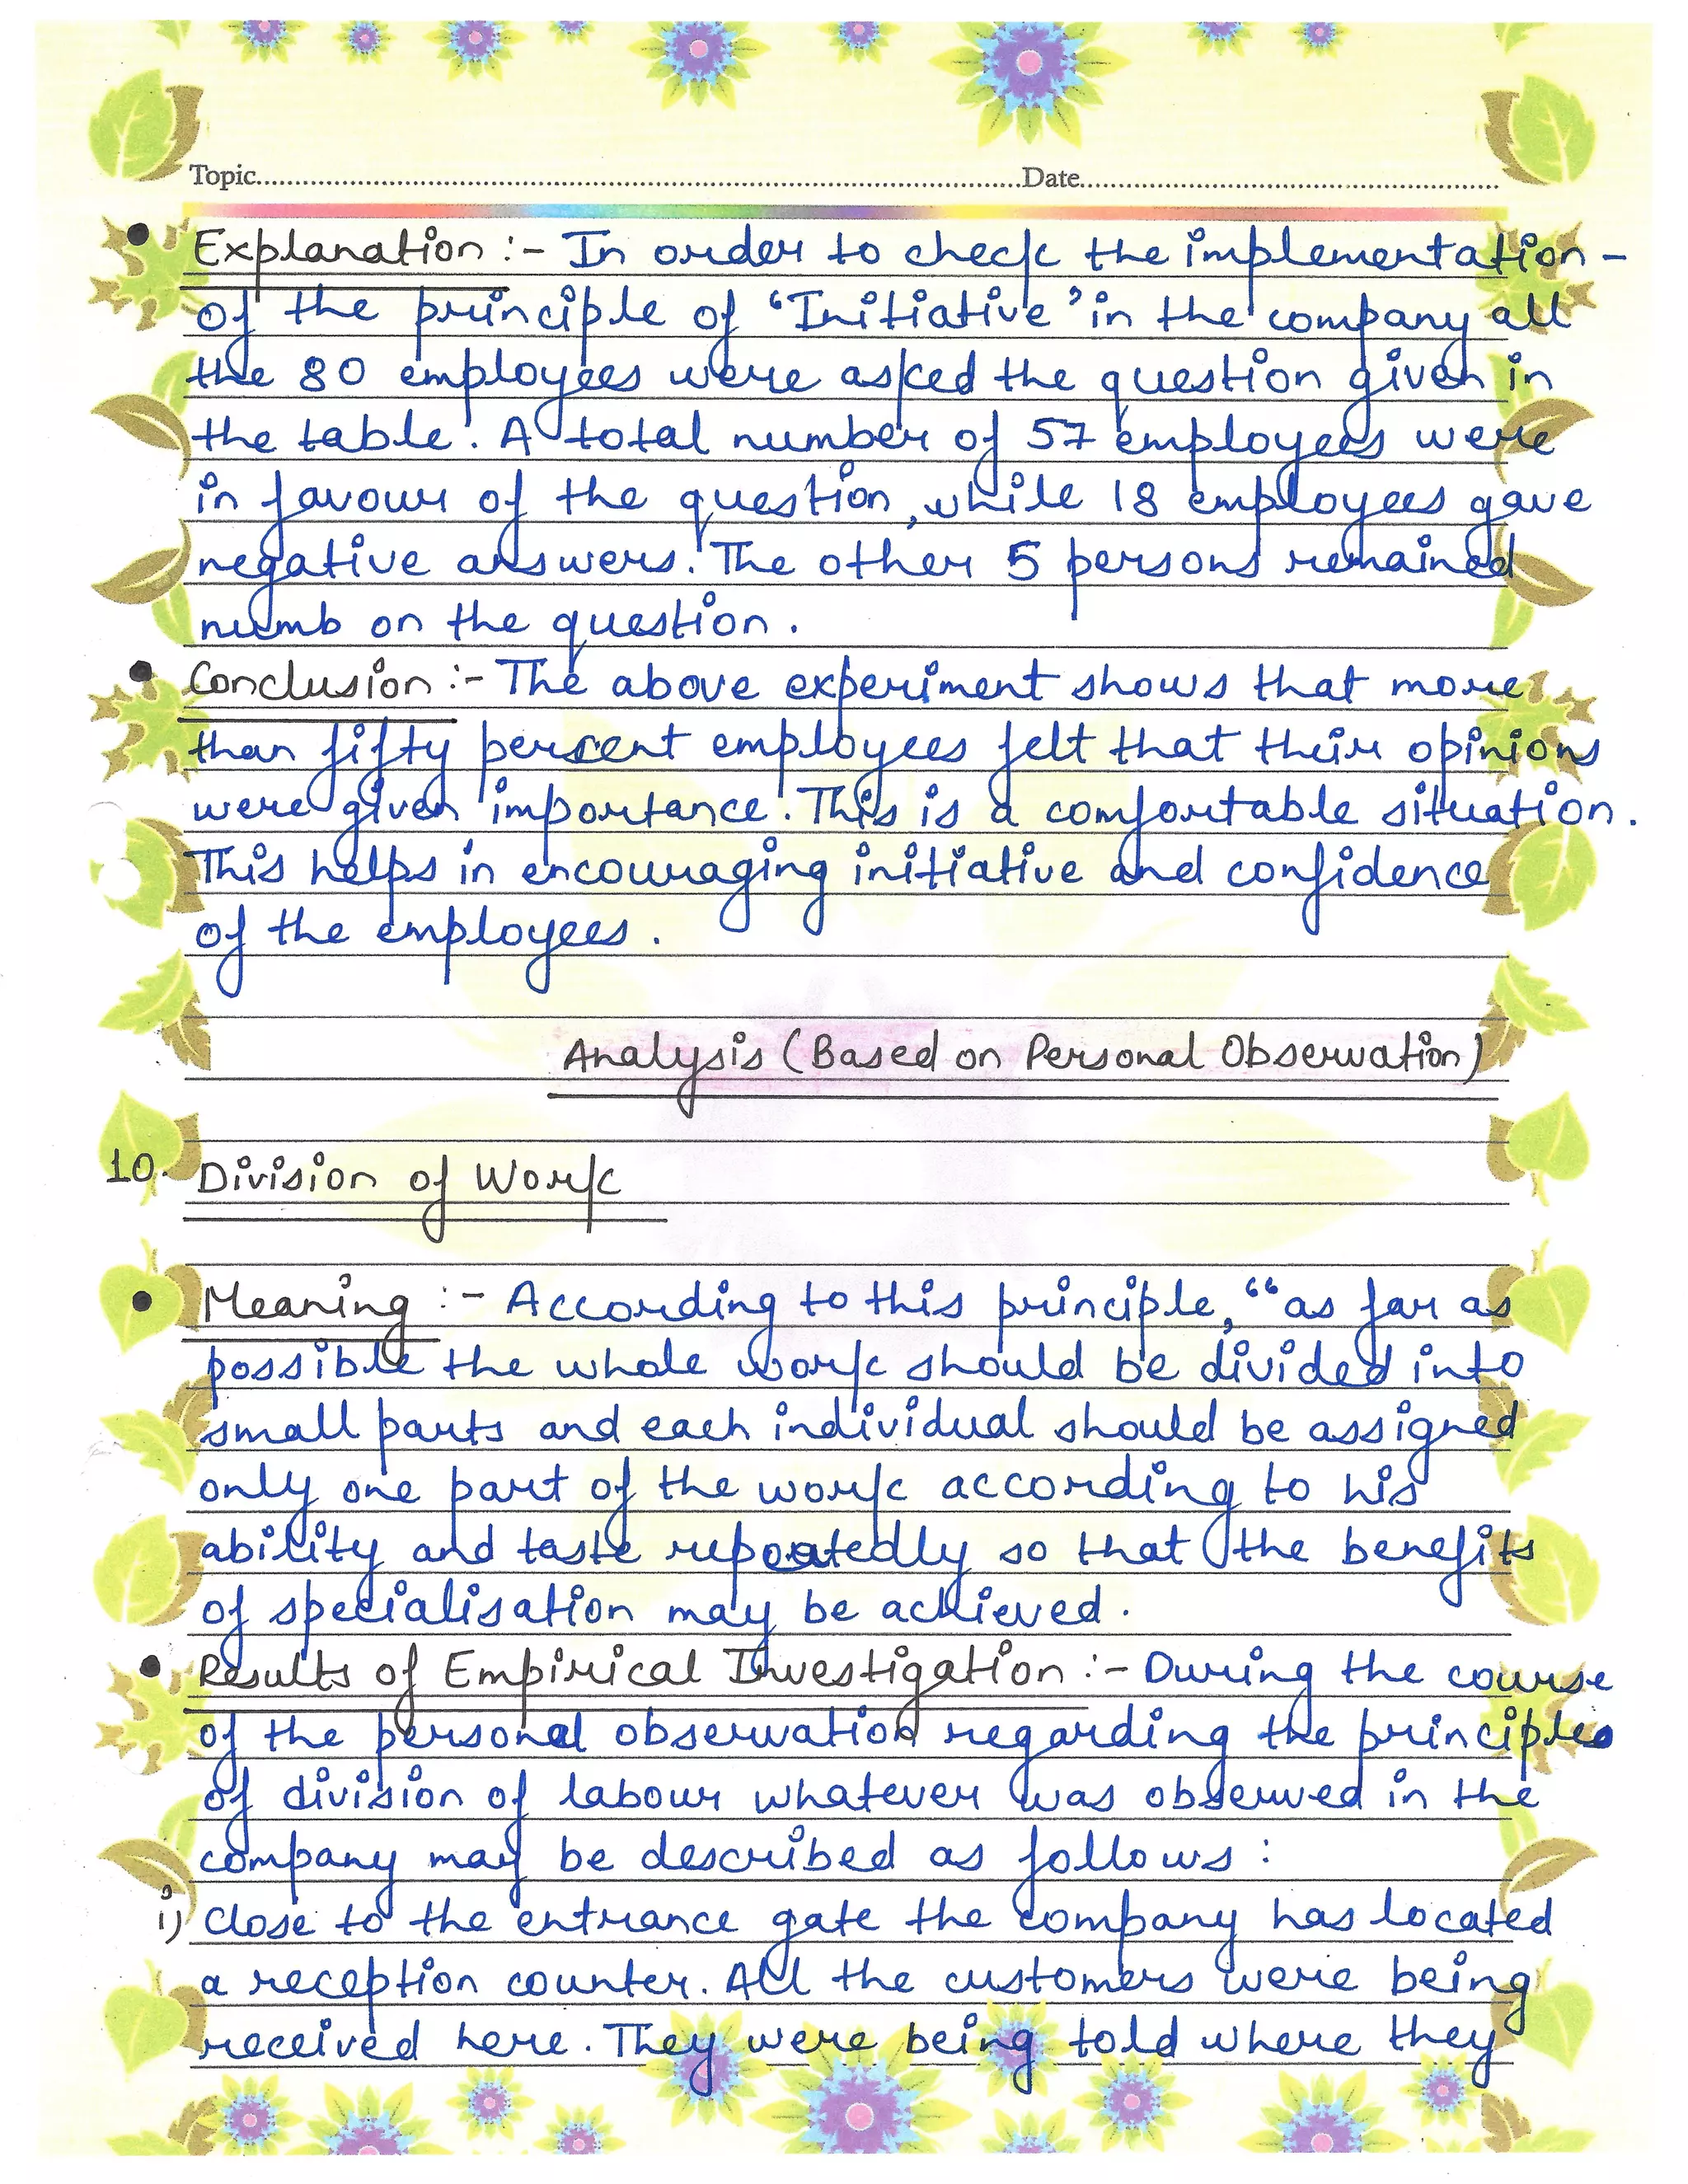 Topic..........Date..........
• Explanation :- In order to check the implementation -
of the principle of 'Initiative' in the company all
the 80 employees were asked the question given in
the table. A total number of 57 employees were
in favour of the question, while 18 employees gave
negative answers. The other 5 persons remained
numb on the question.
• Conclusion :- The above experiment shows that more
than fifty percent employees felt that their opinions
were given importance. This is a comfortable situation.
This helps in encouraging initiative and confidence
of the employees.
Analysis (Based on Personal Observation)
10. Division of Work
• Meaning :- According to this principle, "as far as
possible the whole work should be divided into
small parts and each individual should be assigned
only one part of the work according to his
ability and taste repeatedly so that the benefits
of specialisation may be achieved.
• Results of Empirical Investigation :- During the course
of the personal observation regarding the principles
of division of labour whatever was observed in the
company may be described as follows :
i) Close to the entrance gate the company has located
a reception counter. All the customers were being
received here. They were being told where they